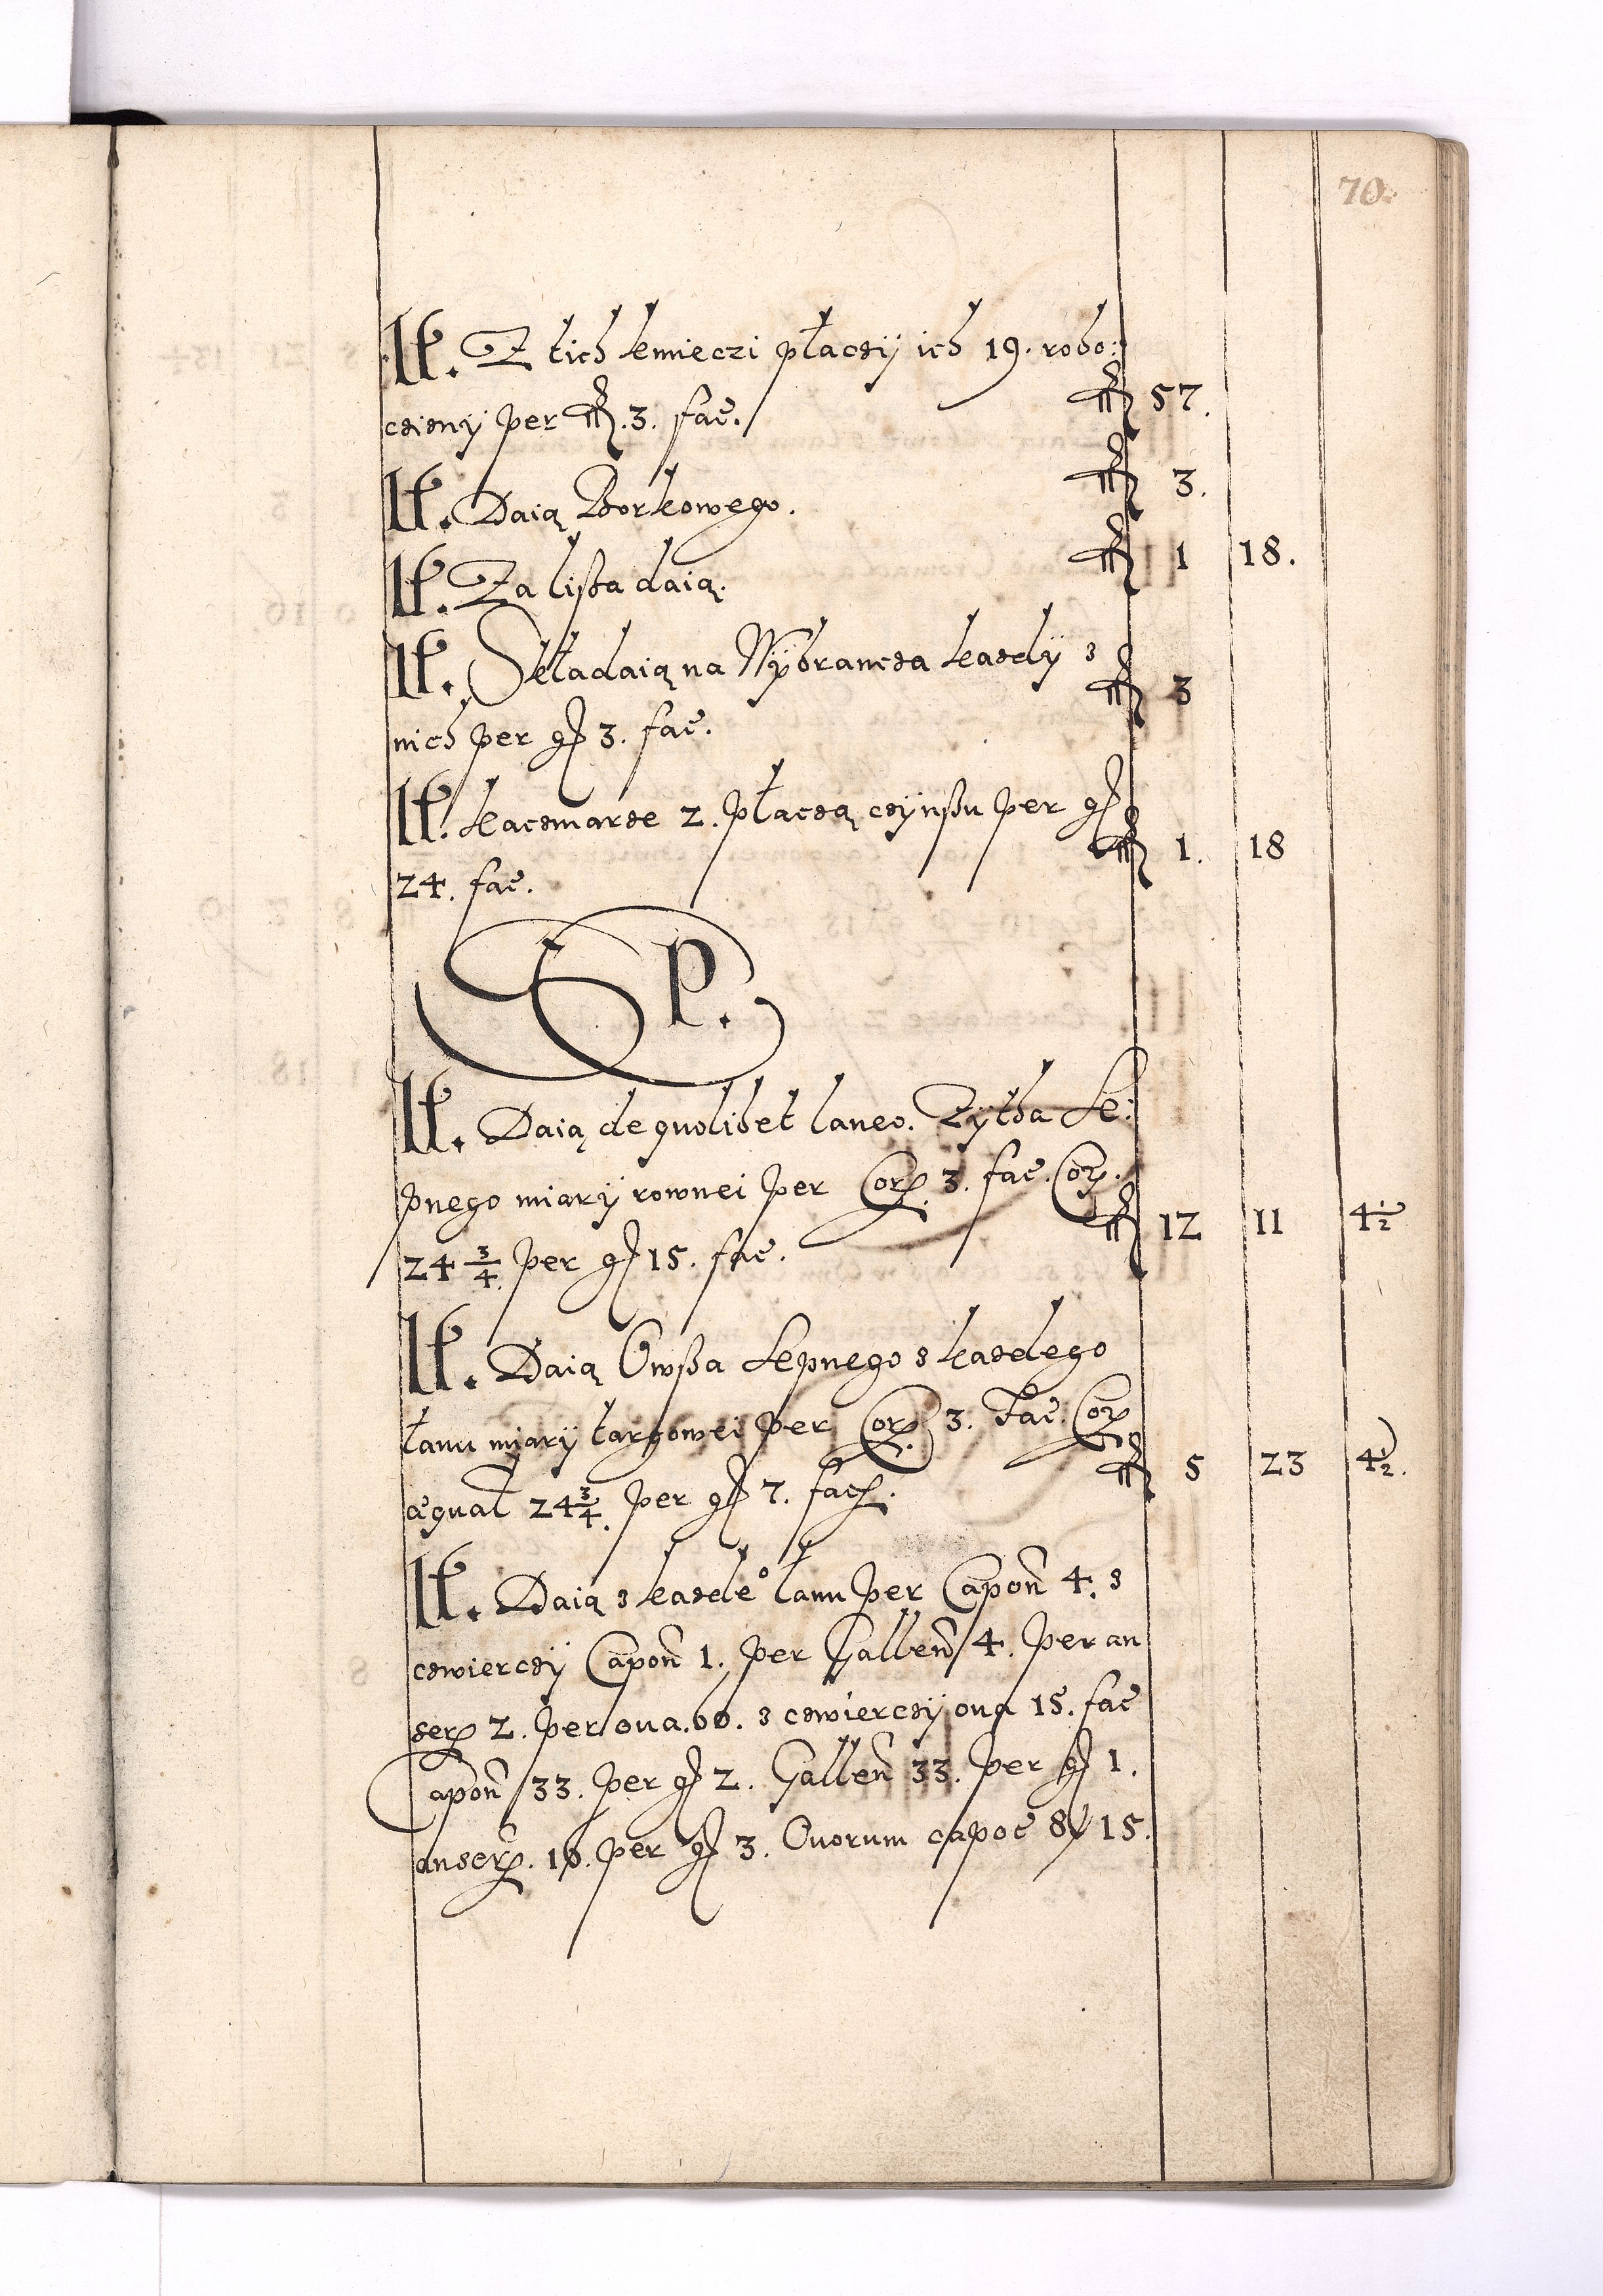 70.
It. Z tich kmieczi płaczÿ ich 19. robo:
cziznÿ per fl. 3. fac. fl 57.
It. Daią Borkowego. fl 3.
It. Za lißa daią. fl 1 18.
It. Składaią na Wÿbrancza kazdÿ z
nich per gr 3. fac. fl 3
It. kaczmarze 2. płaczą czÿnßu per gr
24. fac. fl 1. 18
P.
It. Daią de quolibet laneo. Zÿtha Se:
pnego miarÿ rownei per Corᶻ 3. fac. Corᶻ.
24 3/4 per gr 15. fac. fl 12 11 4 1/2
It. Daią Owßa Sepnego z kazdego
łanu miarÿ targowei per Corᶻ. 3. Fac. Corᶻ
æqual 24 3/4. per gr 7. fac. fl 5 23 4 1/2.
It. Daią z kazdeº łanu per Capon̄ 4. z
czwierczÿ Capon̄ 1. per Gallen̄ 4. per an
serᶻ 2. per oua. 60. z czwierczÿ oua 15. fac
Capon̄ 33. per gr 2. Gallen̄ 33. per gr 1.
anserᶻ. 16. per gr 3. Ouorum capoe 8 15.